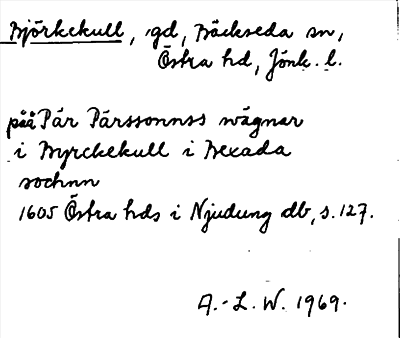 Björkekull, gd, Bäckseda sn,
Östra hd, Jönk. l.
påå Pär Pärssonnss wägnar
i Byrckekull i Bexada
sochnn
1605 Östra hds i Njudung db, s. 127.
A.-L. W. 1969.